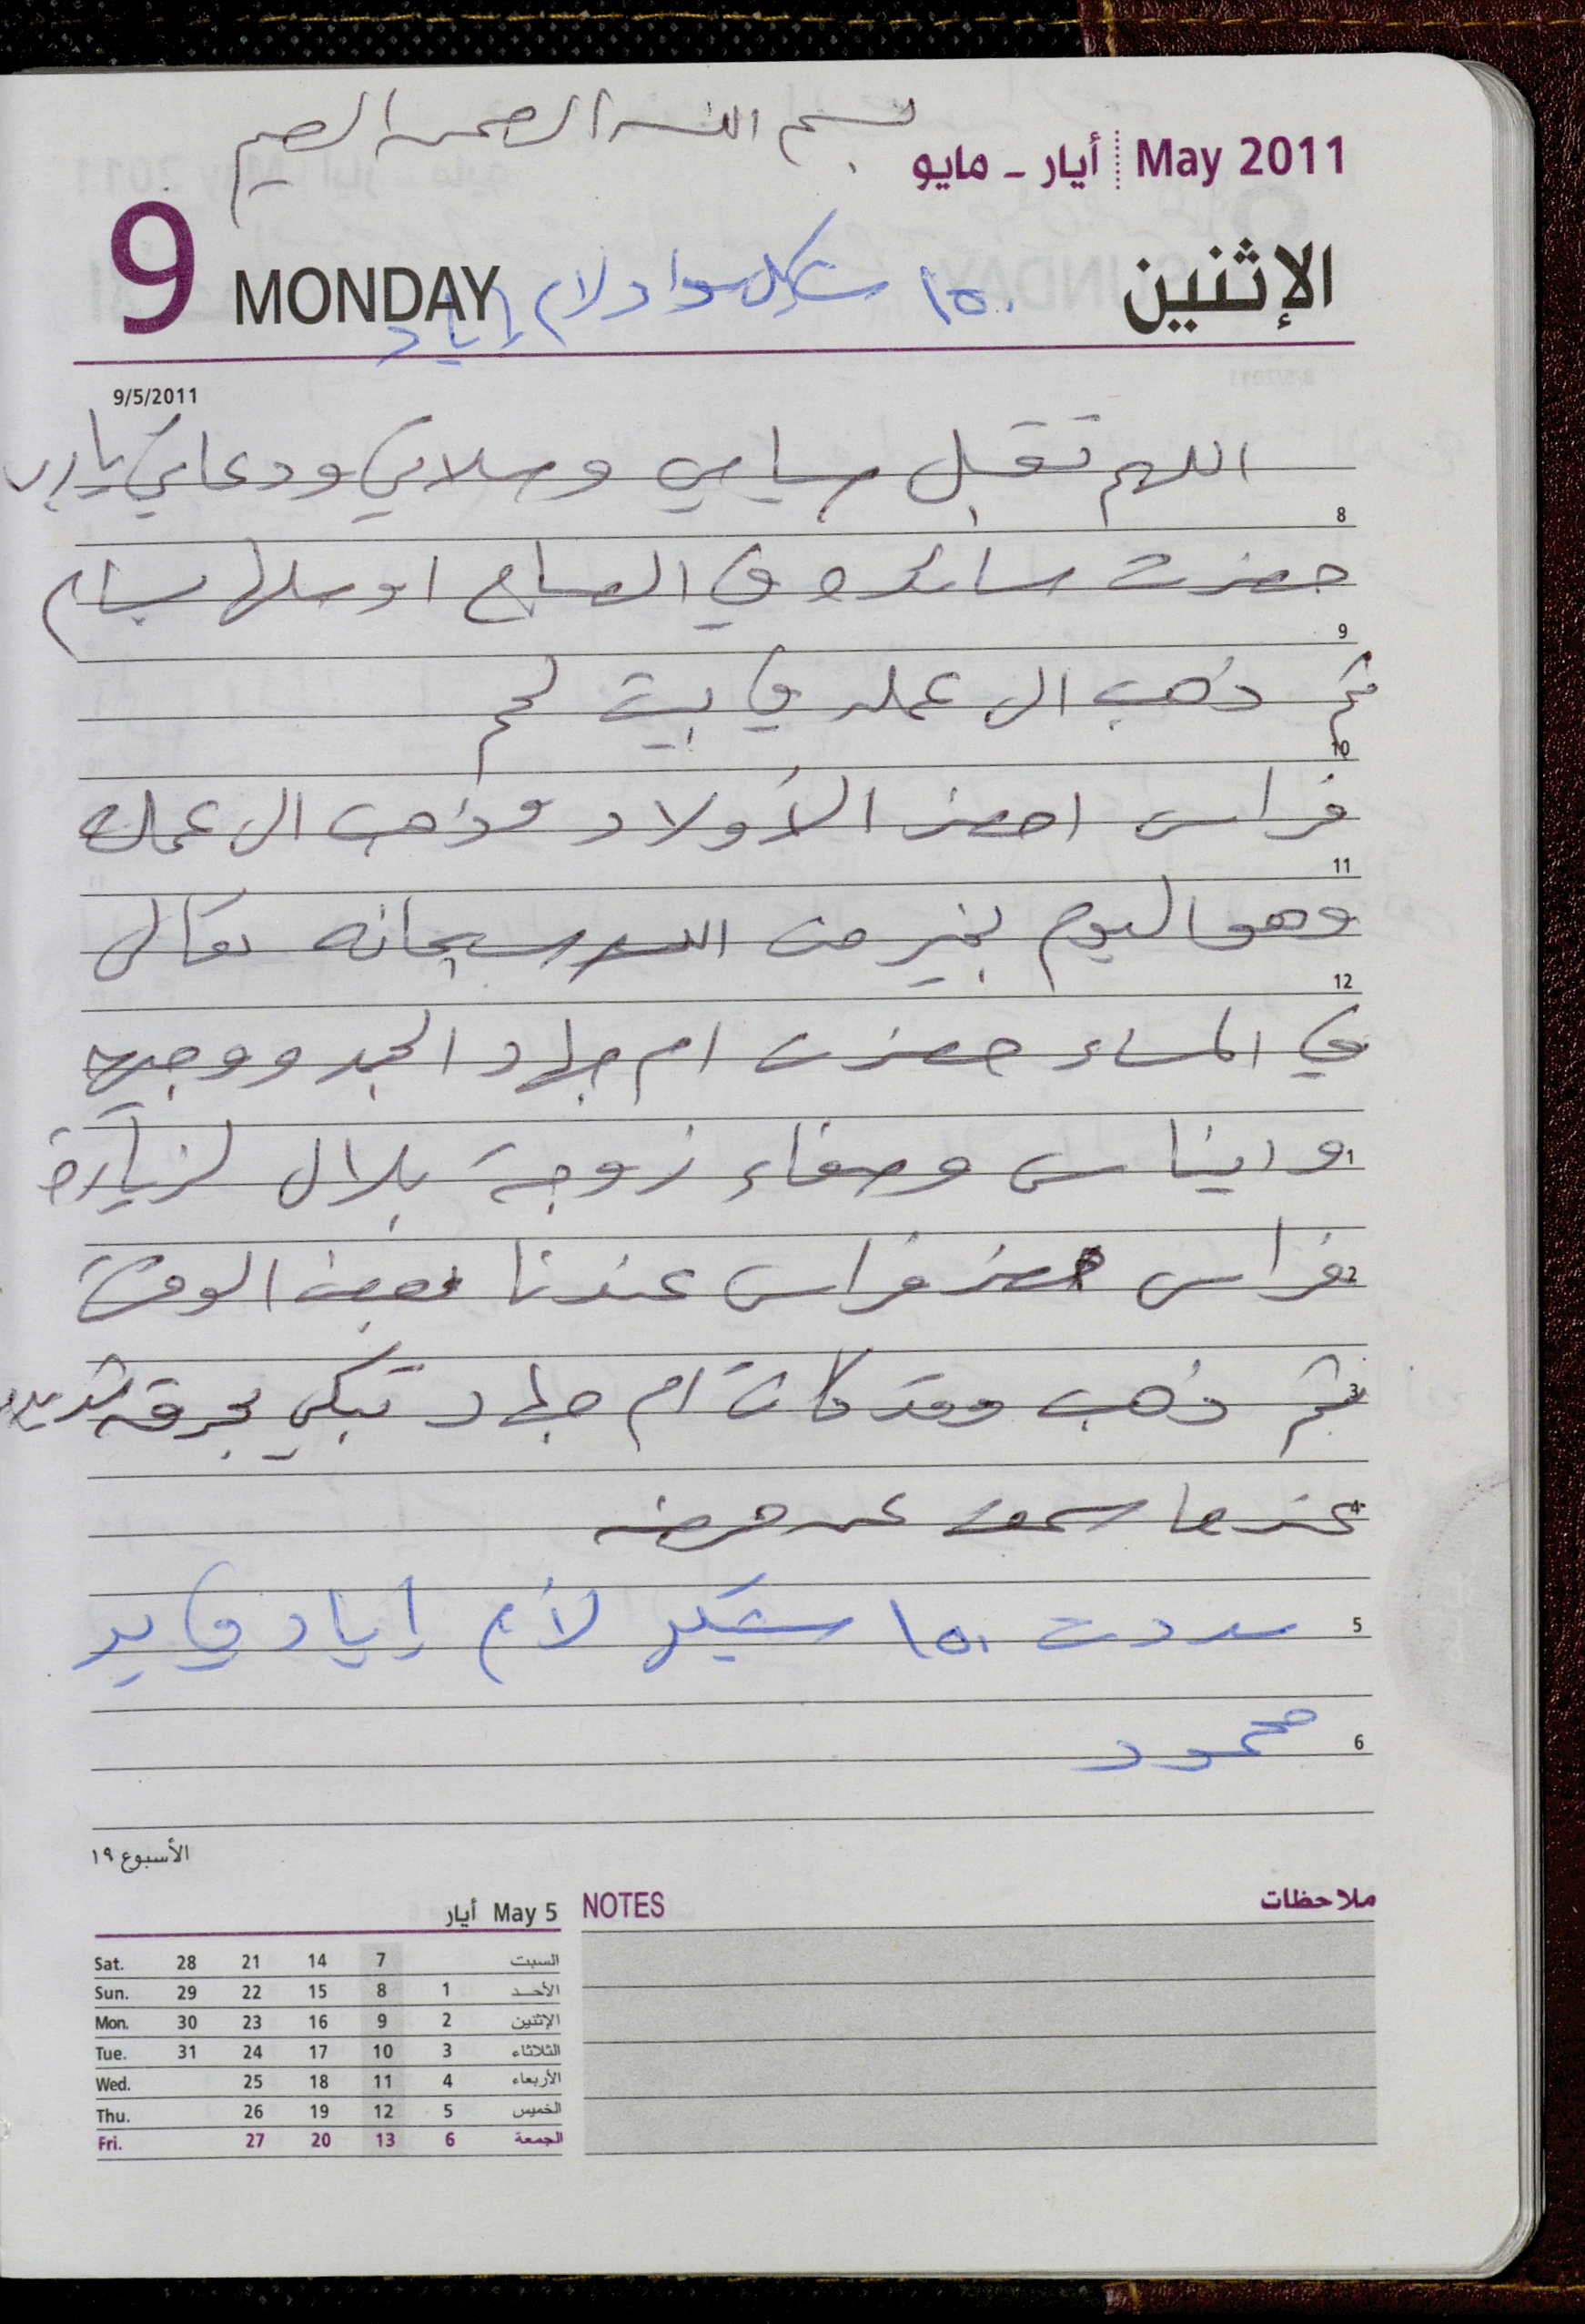 بسم الله الرحمن الرحيم
May 2011 أيار - مايو
9 MONDAY الإثنين
١٥٠ شيكل سداد لام إياد
9/5/2011
اللهم تقبل صيامي وصلاتي ودعائي يا رب
8
حضرت سائدة في الصباح اوصلها بسام
9
ثم ذهب الى عمله في بيت لحم
10
فراس احضر الأولاد وذهب الى عمله
11
وهو اليوم بخير من الله سبحانه تعالى
12
في المساء حضرت ام جهاد الجد ووجيهه
1
وايناس وصفاء زوجة بلال لزيارة
2
فراس حضر فراس عندنا بعض الوقت
3
ثم ذهب وقد كانت ام جهاد تبكي بحرقه شديده
4
عندما سمعت عن مرضه
5
سددت ١٥٠ شيكل لأم إياد في يد
6
محمود
الأسبوع ١٩
May 5 أيار
Sat. 28 21 14 7 السبت
Sun. 29 22 15 8 1 الأحد
Mon. 30 23 16 9 2 الإثنين
Tue. 31 24 17 10 3 الثلاثاء
Wed. 25 18 11 4 الأربعاء
Thu. 26 19 12 5 الخميس
Fri. 27 20 13 6 الجمعة
NOTES ملاحظات